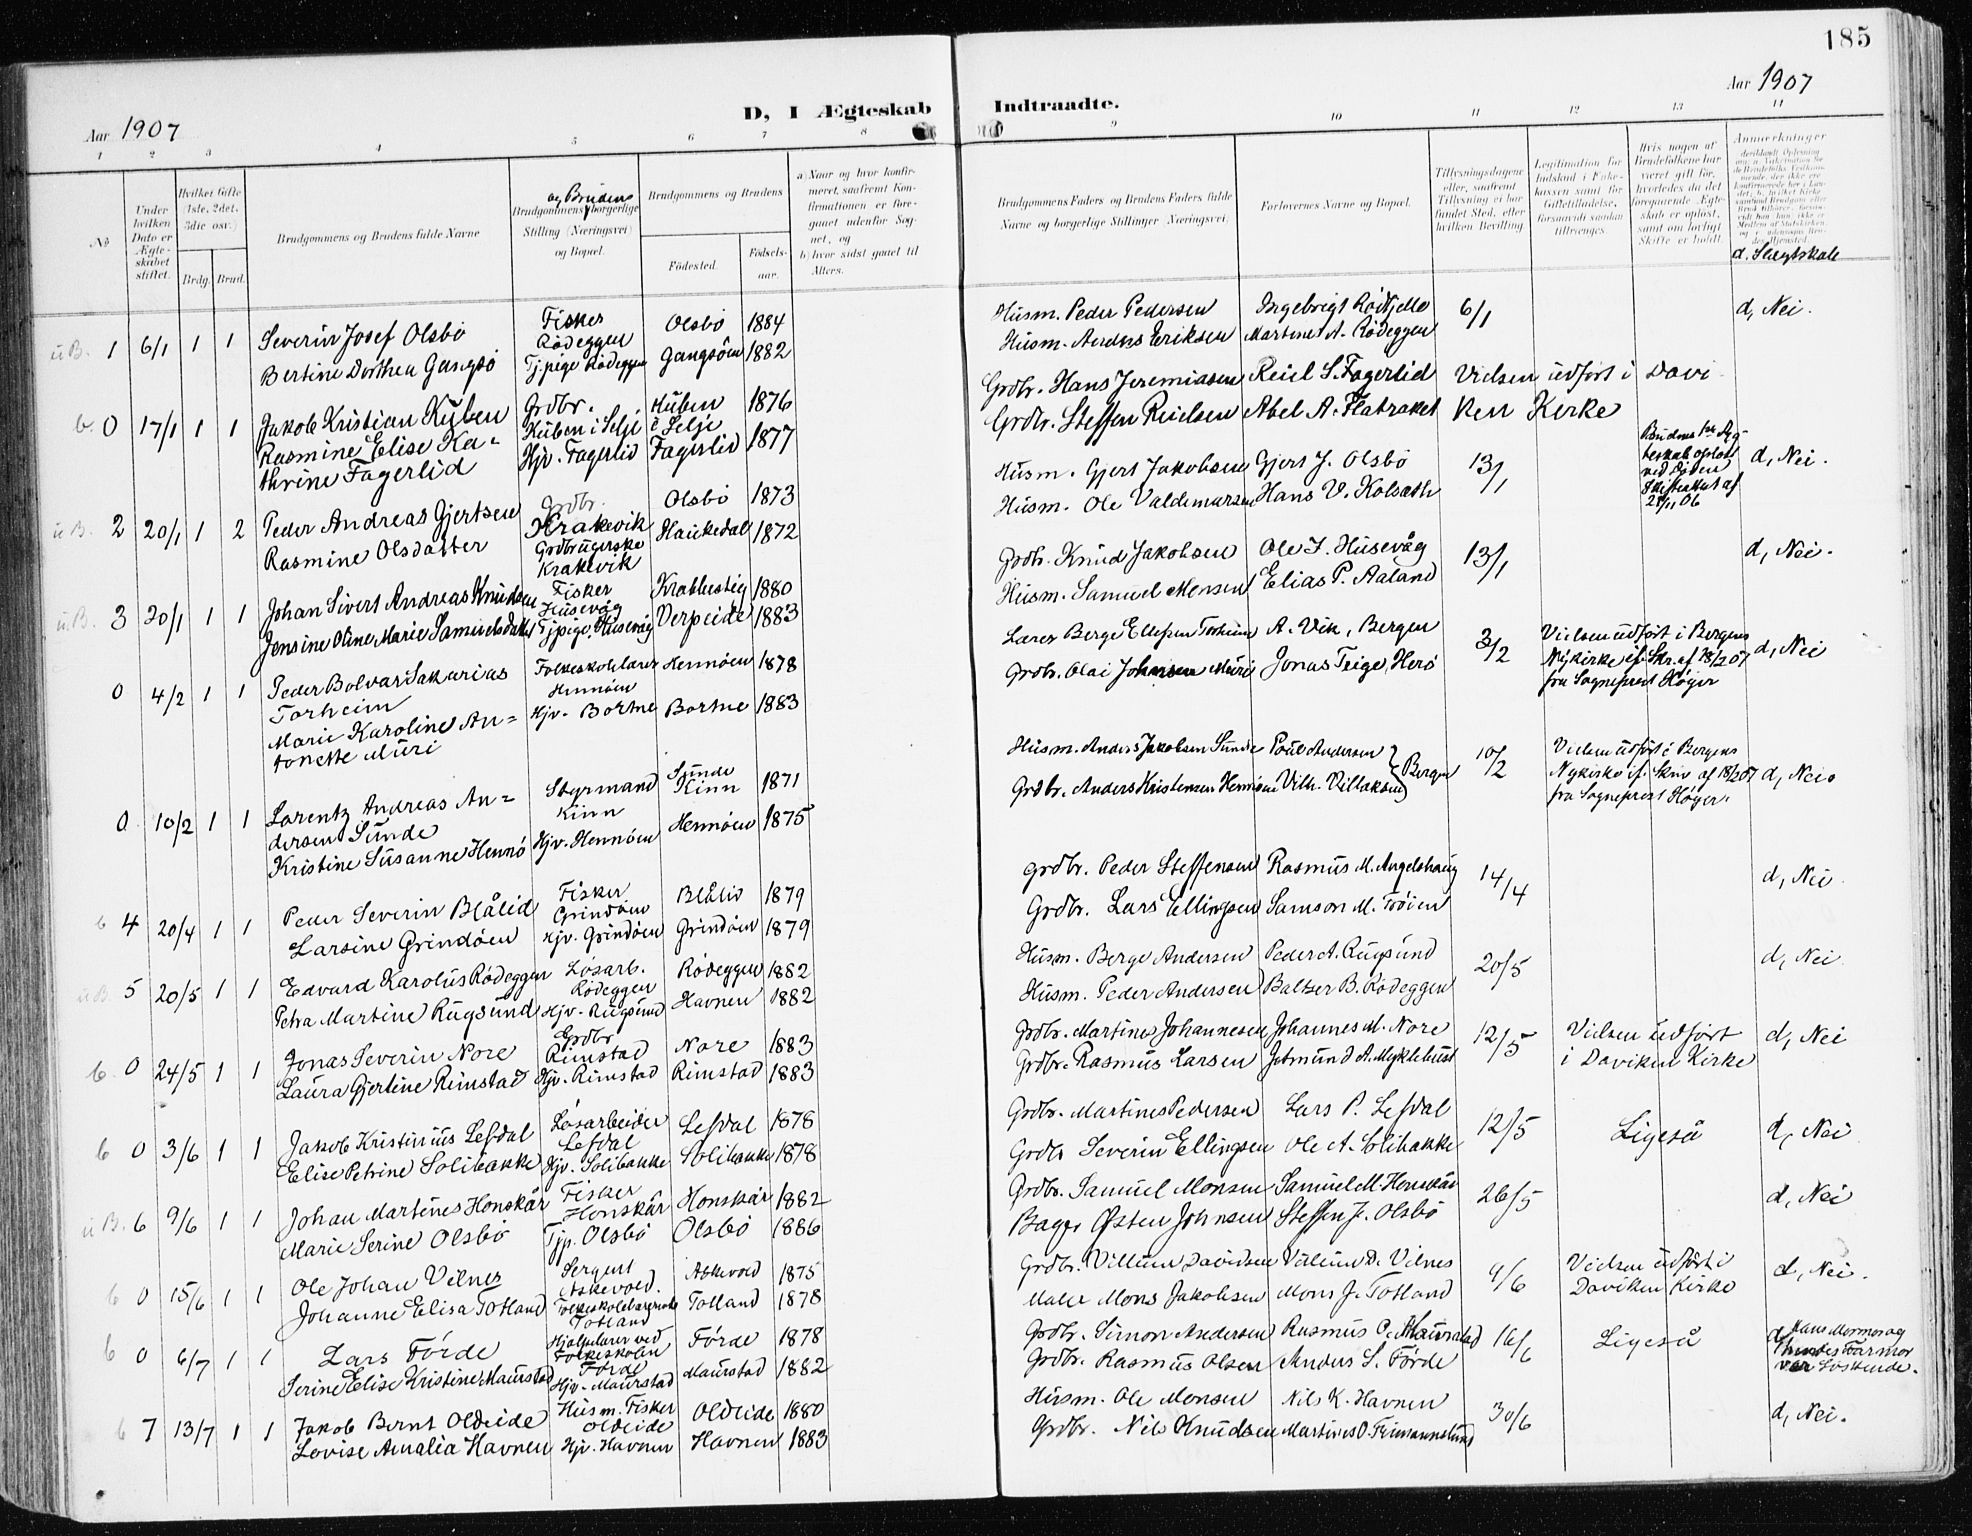 185
Aar 1907
D, I Ægteskab Indtraadte.
Aar 1907
1 2 3 4 5 6 7 8 9 10 11 12 13 14
No
Under hvilken Dato er Ægteskabet stiftet.
Hvilket Gifte (1ste, 2det, 3die osv.)
Brdg. Brud.
Brudgommens og Brudens fulde Navne
og Brudens
Brudgommens borgerlige Stilling (Næringsvei) og Bopæl.
Brudgommens og Brudens
Fødested.
Fødselsaar.
a) Naar og hvor konfirmeret, saafremt Konfirmationen er foregaaet udenfor Sognet, og
b) hvor sidst gaaet til Alters.
Brudgommens Faders og Brudens Faders fulde Navne og borgerlige Stillinger (Næringsvei)
Forlovernes Navne og Bopæl.
Tillysningsdagene eller, saafremt Tillysning ei har fundet Sted, efter hvilken Bevilling.
Legitimation for Indskud i Enkekassen samt for Giftetilladelse, forsaavidt saadan tiltrænges.
Hvis nogen af Brudefolkene har været gift før, hvorledes da det foregaaende Ægteskab er opløst, samt om lovligt Skifte er holdt.
Anmerkninger
d. Slegtskab
u B. 1 6/1 1 1
Severin Josef Olsbö
Bertine Dorthea Gangsö
Fisker
Rödeggen
Tj.pige Rödeggen
Olsbö 1884
Gangsöen 1882
Husm. Peder Pedersen
Husm. Anders Eriksen
Ingebrigt Rödfjelle
Martines A. Rödeggen
6/1
d, Nei.
b. 0 17/1 1 1
Jakob Kristian Kuben
Rasmine Elise Ka=
thrine Fagerlid
Grdbr.
Kuben i Selje
Hjv. Fagerlid
Kuben
i Selje 1876
Fagerlid 1877
Grdbr. Hans Jeremiasen
Grdbr. Steffen Reielsen
Reiel S. Fagerlid
Abel A. Flatraket
Vielsen udfört i Davi
ken Kirke
u B. 2 20/1 1 2
Peder Andreas Gjertsen
Rasmine Olsdatter
Grdbr.
Krakevik
Grdbrugerske
Krakevik
Olsbö 1873
Haukedal 1872
Husm. Gjert Jakobsen
Husm. Ole Valdemarsen
Gjert J. Olsbö
Hans V. Kolseth
13/1
Brudens 1ste Æg-
teskab oplöst
ved Döden
Skifteattest af
21/11 06
d, Nei.
u B. 3 20/1 1 1
Johan Sivert Andreas Knudsen
Jensine Oline Marie Samuelsdatter
Fisker
Husevåg
Tjpige, Husevåg
Krabbestig 1880
Verpeide 1883
Grdbr. Knud Jakobsen
Husm. Samuel Monsen
Ole J. Husevåg
Elias P. Aaland
13/1
d, Nei.
0 4/2 1 1
Peder Bolvar Sakarias
Torheim
Marie Karoline An=
tonette Muri
Folkeskolelærer
Hennöen
Hjv. Bortne
Hennöen 1878
Bortne 1883
Lærer Berge Ellefsen Torheim
Grdbr. Olai Johansen Muri
A. Vik, Bergen
Jonas Teige, Herö
3/2
Vielsen udfört i Bergens
Nykirke if. Skr. af 18/2 07
fra Sogneprest Höyer
d, Nei
0 10/2 1 1
Lorentz Andreas An=
dersen Sunde
Kristine Susanne Hennö
Styrmand
Kinn
Hjv. Hennöen
Sunde
Kinn 1871
Hennöen 1875
Husm. Anders Jakobsen Sunde
Grdbr. Anders Kristensen Hennöen
Poul Andersen
Vilh. Villaksen
Bergen
10/2
Vielsen udfört i Bergens
Nykirke if. Skriv af 18/2 07
fra Sogneprest Höyer.
d, Nei
b 4 20/4 1 1
Peder Severin Blålid
Larsine Grindöen
Fisker
Grindöen
Hjv. Grindöen
Blålid 1879
Grindöen 1879
Grdbr. Peder Steffensen
Grdbr. Lars Ellingsen
Rasmus M. Angelshaug
Samson M. Tröien
14/4
d, Nei.
u B. 5 20/5 1 1
Edvard Karolus Rödeggen
Petra Martine Rugsund
Lösarb.
Rödeggen
Hjv. Rugsund
Rödeggen 1882
Havnen 1882
Husm. Berge Andersen
Husm. Peder Andersen
Peder A. Rugsund
Baltser B. Rödeggen
20/5
d, Nei
b. 0 24/5 1 1
Jonas Severin Nore
Laura Gjertine Rimstad
Grdbr
Rimstad
Hjv. Rimstad
Nore 1883
Rimstad 1883
Grdbr. Martines Johannesen
Grdbr. Rasmus Larsen
Johannes M. Nore
Jetmund A. Myklebust
12/5
Vielsen udfört
i Daviken Kirke
d, Nei
b 0 3/6 1 1
Jakob Kristinius Lefdal
Elise Petrine Solibakke
Lösarbeider
Lefdal
Hjv. Solibakke
Lefdal 1878
Solibakke 1878
Grdbr. Martines Pedersen
Grdbr Severin Ellingsen
Lars P. Lefdal
Ole A. Solibakke
12/5
Ligeså
d, Nei
u B. 6 9/6 1 1
Johan Martines Honskår
Marie Serine Olsbö
Fisker
Honskår
Tjp. Olsbö
Honskår 1882
Olsbö 1886
Grdbr. Samuel Monsen
Bager Østen Johnsen
Samuel M. Honskår
Steffen J. Olsbö
26/5
d, Nei
b 0 15/6 1 1
Ole Johan Vilnes
Johanne Elisa Totland
Sergent
Askevold.
Folkeskolelærerinde
Totland
Askevold 1875
Totland 1878
Grdbr. Villum Davidsen
Maler Mons Jakobsen
Villum D. Vilnes
Mons J. Totland
9/6
Vielsen udfört i
Daviken Kirke
d, Nei.
b 0 6/7 1 1
Lars Förde
Serine Elise Kristine Maurstad
Hjælpelærer ved
Folkeskolen
Förde
Hjv. Maurstad
Förde 1878
Maurstad 1882
Grdbr. Simon Andersen
Grdbr. Rasmus Olsen
Rasmus O. Maurstad
Anders S. Förde
16/6
Ligeså
d, Hans Mormor og
hendes Farmor
var Söskende.
b 7 13/7 1 1
Jakob Bernt Oldeide
Lovise Amalia Havnen
Husm. Fisker
Oldeide
Hjv. Havnen
Oldeide 1880
Havnen 1883
Husm. Ole Monsen
Grdbr. Nils Knudsen
Nils K. Havnen
Martines O. Frimannslund
30/6
d, Nei.